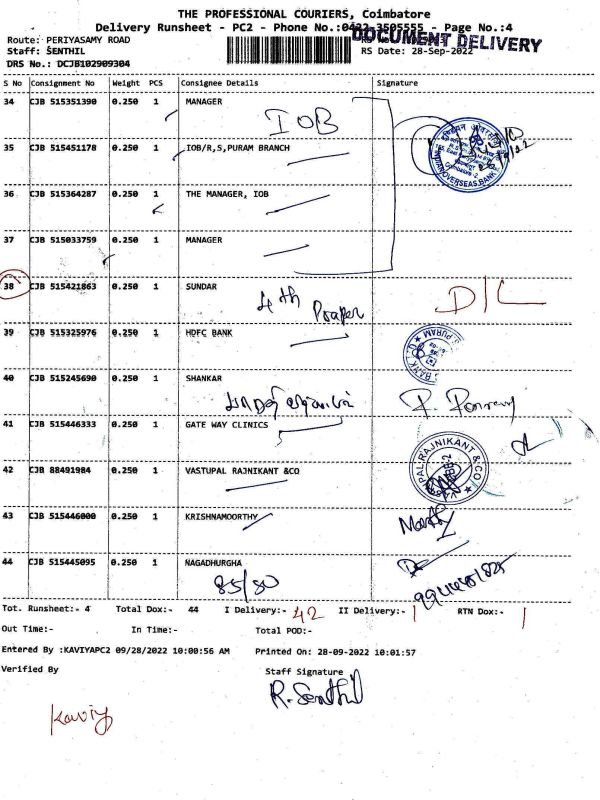 THE PROFESSIONAL COURIERS, Coimbatore
Delivery Runsheet - PC2 - Phone No.:0422 3505555 - Page No.:4
DOCUMENT DELIVERY
Route: PERIYASAMY ROAD
Staff: SENTHIL RS Date: 28-Sep-2022
DRS No.: DCJB102909304
S No Consignment No Weight PCS Consignee Details Signature
34 CJB 515351390 0.250 1 MANAGER
IOB
35 CJB 515451178 0.250 1 IOB/R,S,PURAM BRANCH
INDIAN OVERSEAS BANK
36 CJB 515364287 0.250 1 THE MANAGER, IOB
37 CJB 515033759 0.250 1 MANAGER
38 CJB 515421863 0.250 1 SUNDAR
4th D/L
39 CJB 515325976 0.250 1 HDFC BANK
40 CJB 515245690 0.250 1 SHANKAR
41 CJB 515446333 0.250 1 GATE WAY CLINICS
42 CJB 88491984 0.250 1 VASTUPAL RAJNIKANT &CO
VASTUPAL RAJNIKANT & CO
43 CJB 515446000 0.250 1 KRISHNAMOORTHY
44 CJB 515445095 0.250 1 NAGADHURGHA
85/80
Tot. Runsheet:- 4 Total Dox:- 44 I Delivery:- 42 II Delivery:- 1 RTN Dox:- 1
Out Time:- In Time:- Total POD:-
Entered By :KAVIYAPC2 09/28/2022 10:00:56 AM Printed On: 28-09-2022 10:01:57
Verified By Staff Signature
R. Senthil
Kaviy